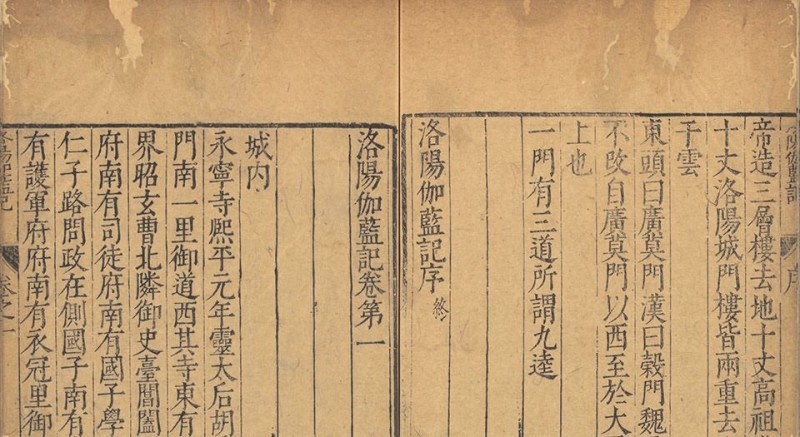 洛陽伽藍記 序
帝造三層樓去地十丈高祖
十丈洛陽城門樓皆兩重去
干雲
東頭曰廣莫門漢曰穀門魏
不改自廣莫門以西至於大
上也
一門有三道所謂九逵
洛陽伽藍記序 終
洛陽伽藍記卷第一
城内
永寧寺熙平元年靈太后胡
門南一里御道西其寺東有
界昭玄曹北隣御史臺閶闔
府南有司徒府南有國子學
仁子路問政在側國子南有
有護軍府府南有衣冠里御
洛陽伽藍記 卷之一